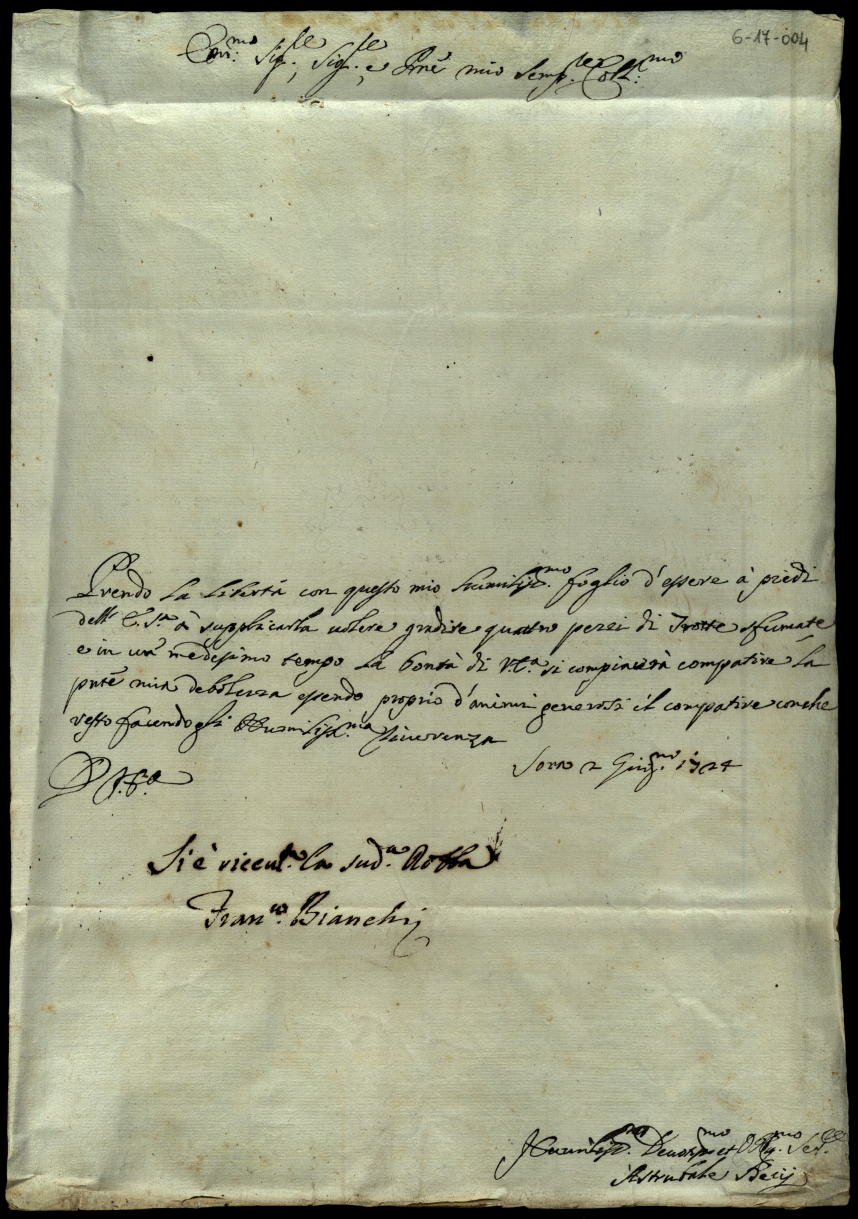 6-17-004
Em:mo Sig:re, Sig:re e Pne mio semp:re Coll:mo
Prendo la libertà con questo mio humiliss:mo foglio d'essere à piedi
dell' E. S:ra à supplicarla volere gradire quattro pezzi di Trotte sfumate
e in un' medesimo tempo la bontà di V.E:a si compiacerà compatire la
pnte mia debolezza essendo proprio d'animi generosi il compatire, con che
resto facendogli Humiliss:ma Riverenza
D V.E:a
Sora 2 Giug:no 1724
Si è riceut:a la sud:a Robba
Fran:co Bianchi
Humiliss:mo Devotiss:mo et Obblig:mo Ser:re
Astrubale